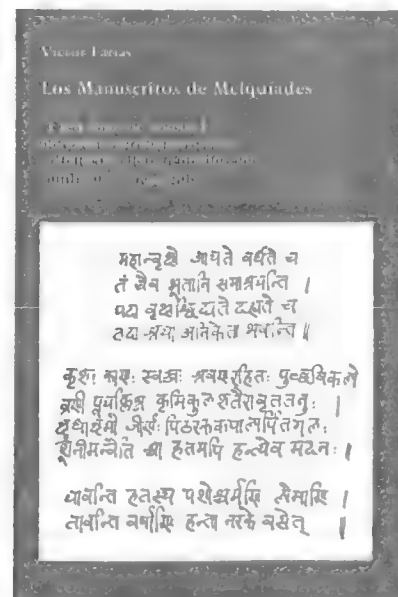 Victor Farías
Los Manuscritos de Melquíades
महान्वृक्षो जायते वर्धते च
तं चैव भूतानि समाश्रयन्ति ।
यदा वृक्षश्छिद्यते दह्यते च
तदाश्रया अनिकेता भवन्ति ॥
कृशः काणः खञ्जः श्रवणरहितः पुच्छविकलो
व्रणी पूयक्लिन्नः कृमिकुलशतैरावृततनुः ।
क्षुधाक्षामो जीर्णः पिठरककपालार्पितगलः
शुनीमन्वेति श्वा हतमपि हन्त्येव मदनः ।
यावन्ति हतस्य पशोश्चर्मणि लोमानि ।
तावन्ति वर्षाणि हन्ता नरके वसेत् ॥